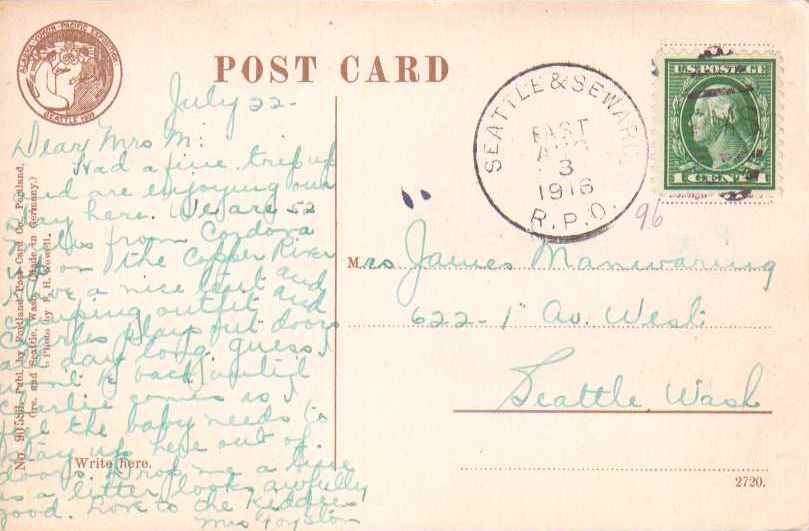 ALASKA-YUKON-PACIFIC EXPOSITION
SEATTLE 1909
POST CARD
SEATTLE & SEWARD
EAST
AUG
3
1916
R.P.O.
U.S. POSTAGE
1 CENT 1
96
July 22-
Dear Mrs M:
Had a fine trip up
and are enjoying our
stay here. We are 52
miles from Cordova
up on the Copper River
have a nice tent and
camping outfit and
Charles plays out doors
all day long. guess I
wont be back until
Charlie comes as I
feel the baby needs to
stay up here out of
doors. Drop me a line
as a letter looks awfully
good. Love to the Kiddies
Mrs
Mrs James Manwaring
622-1" Av. West.
Seattle Wash
No. Publ. by Portland Post Card Co., Portland,
Ore. and Seattle, Wash. (Made in Germany.)
Photo by F. H. Nowell.
Write here.
2720.